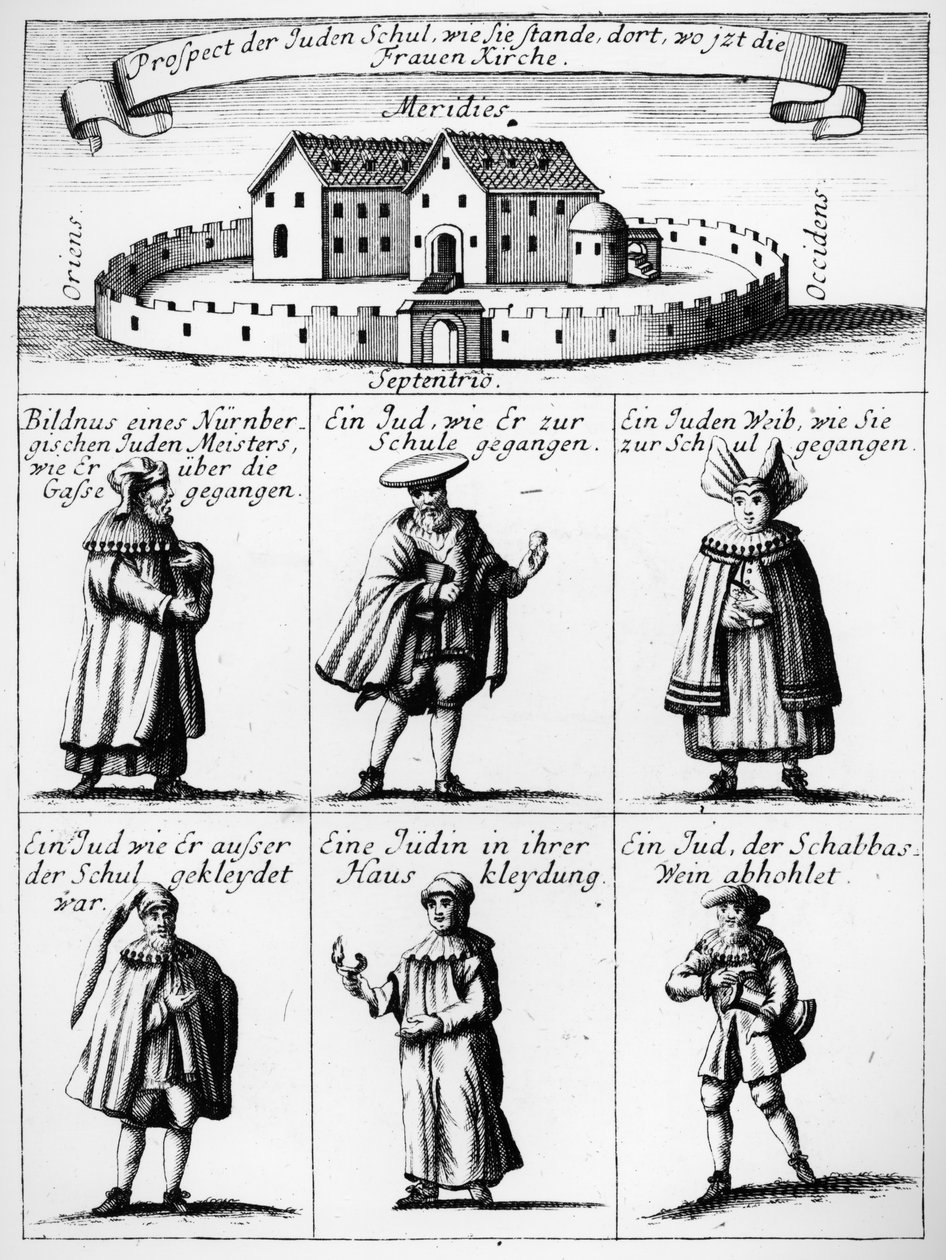 Prospect der Juden Schul, wie Sie stande, dort, wo jzt die
Frauen Kirche.
Meridies
Oriens
Occidens
Septentrio.
Bildnus eines Nürnber-
gischen Juden Meisters,
wie Er über die
Gasse gegangen.
Ein Jud, wie Er zur
Schule gegangen.
Ein Juden Weib, wie Sie
zur Schul gegangen.
Ein Jud wie Er ausser
der Schul gekleydet
war.
Eine Jüdin in ihrer
Haus kleydung.
Ein Jud, der Schabbas-
Wein abhohlet.